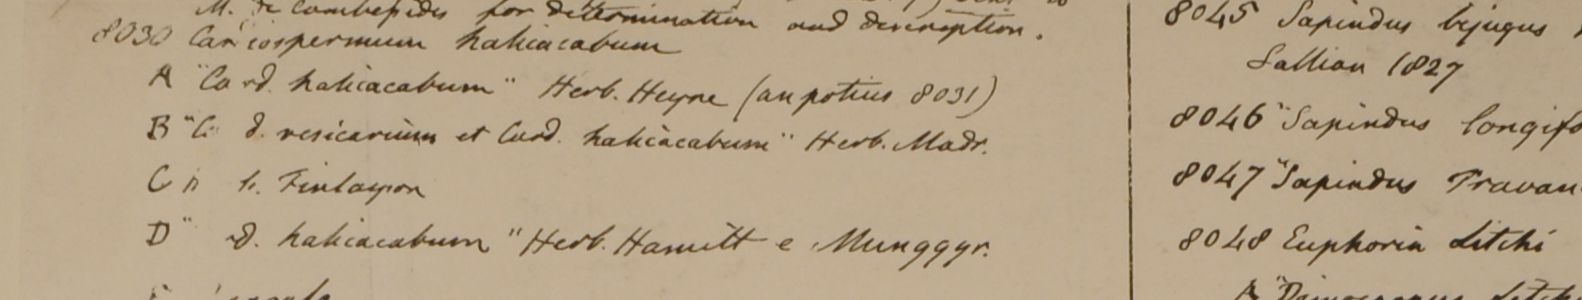 M. de Cambessides for determination and description.
8030 Cardiospermum halicacabum
A "Card. halicacabum" Herb. Heyne (an potius 8031)
B "C d. vesicarium et Card. halicacabum" Herb. Madr.
C h. Finlayson
D " d. halicacabum" Herb. Hamilt e Munggyr.
8045 Sapindus bijugus
Sallian 1827
8046 "Sapindus longifo
8047 "Sapindus Travan
8048 Euphoria Litchi